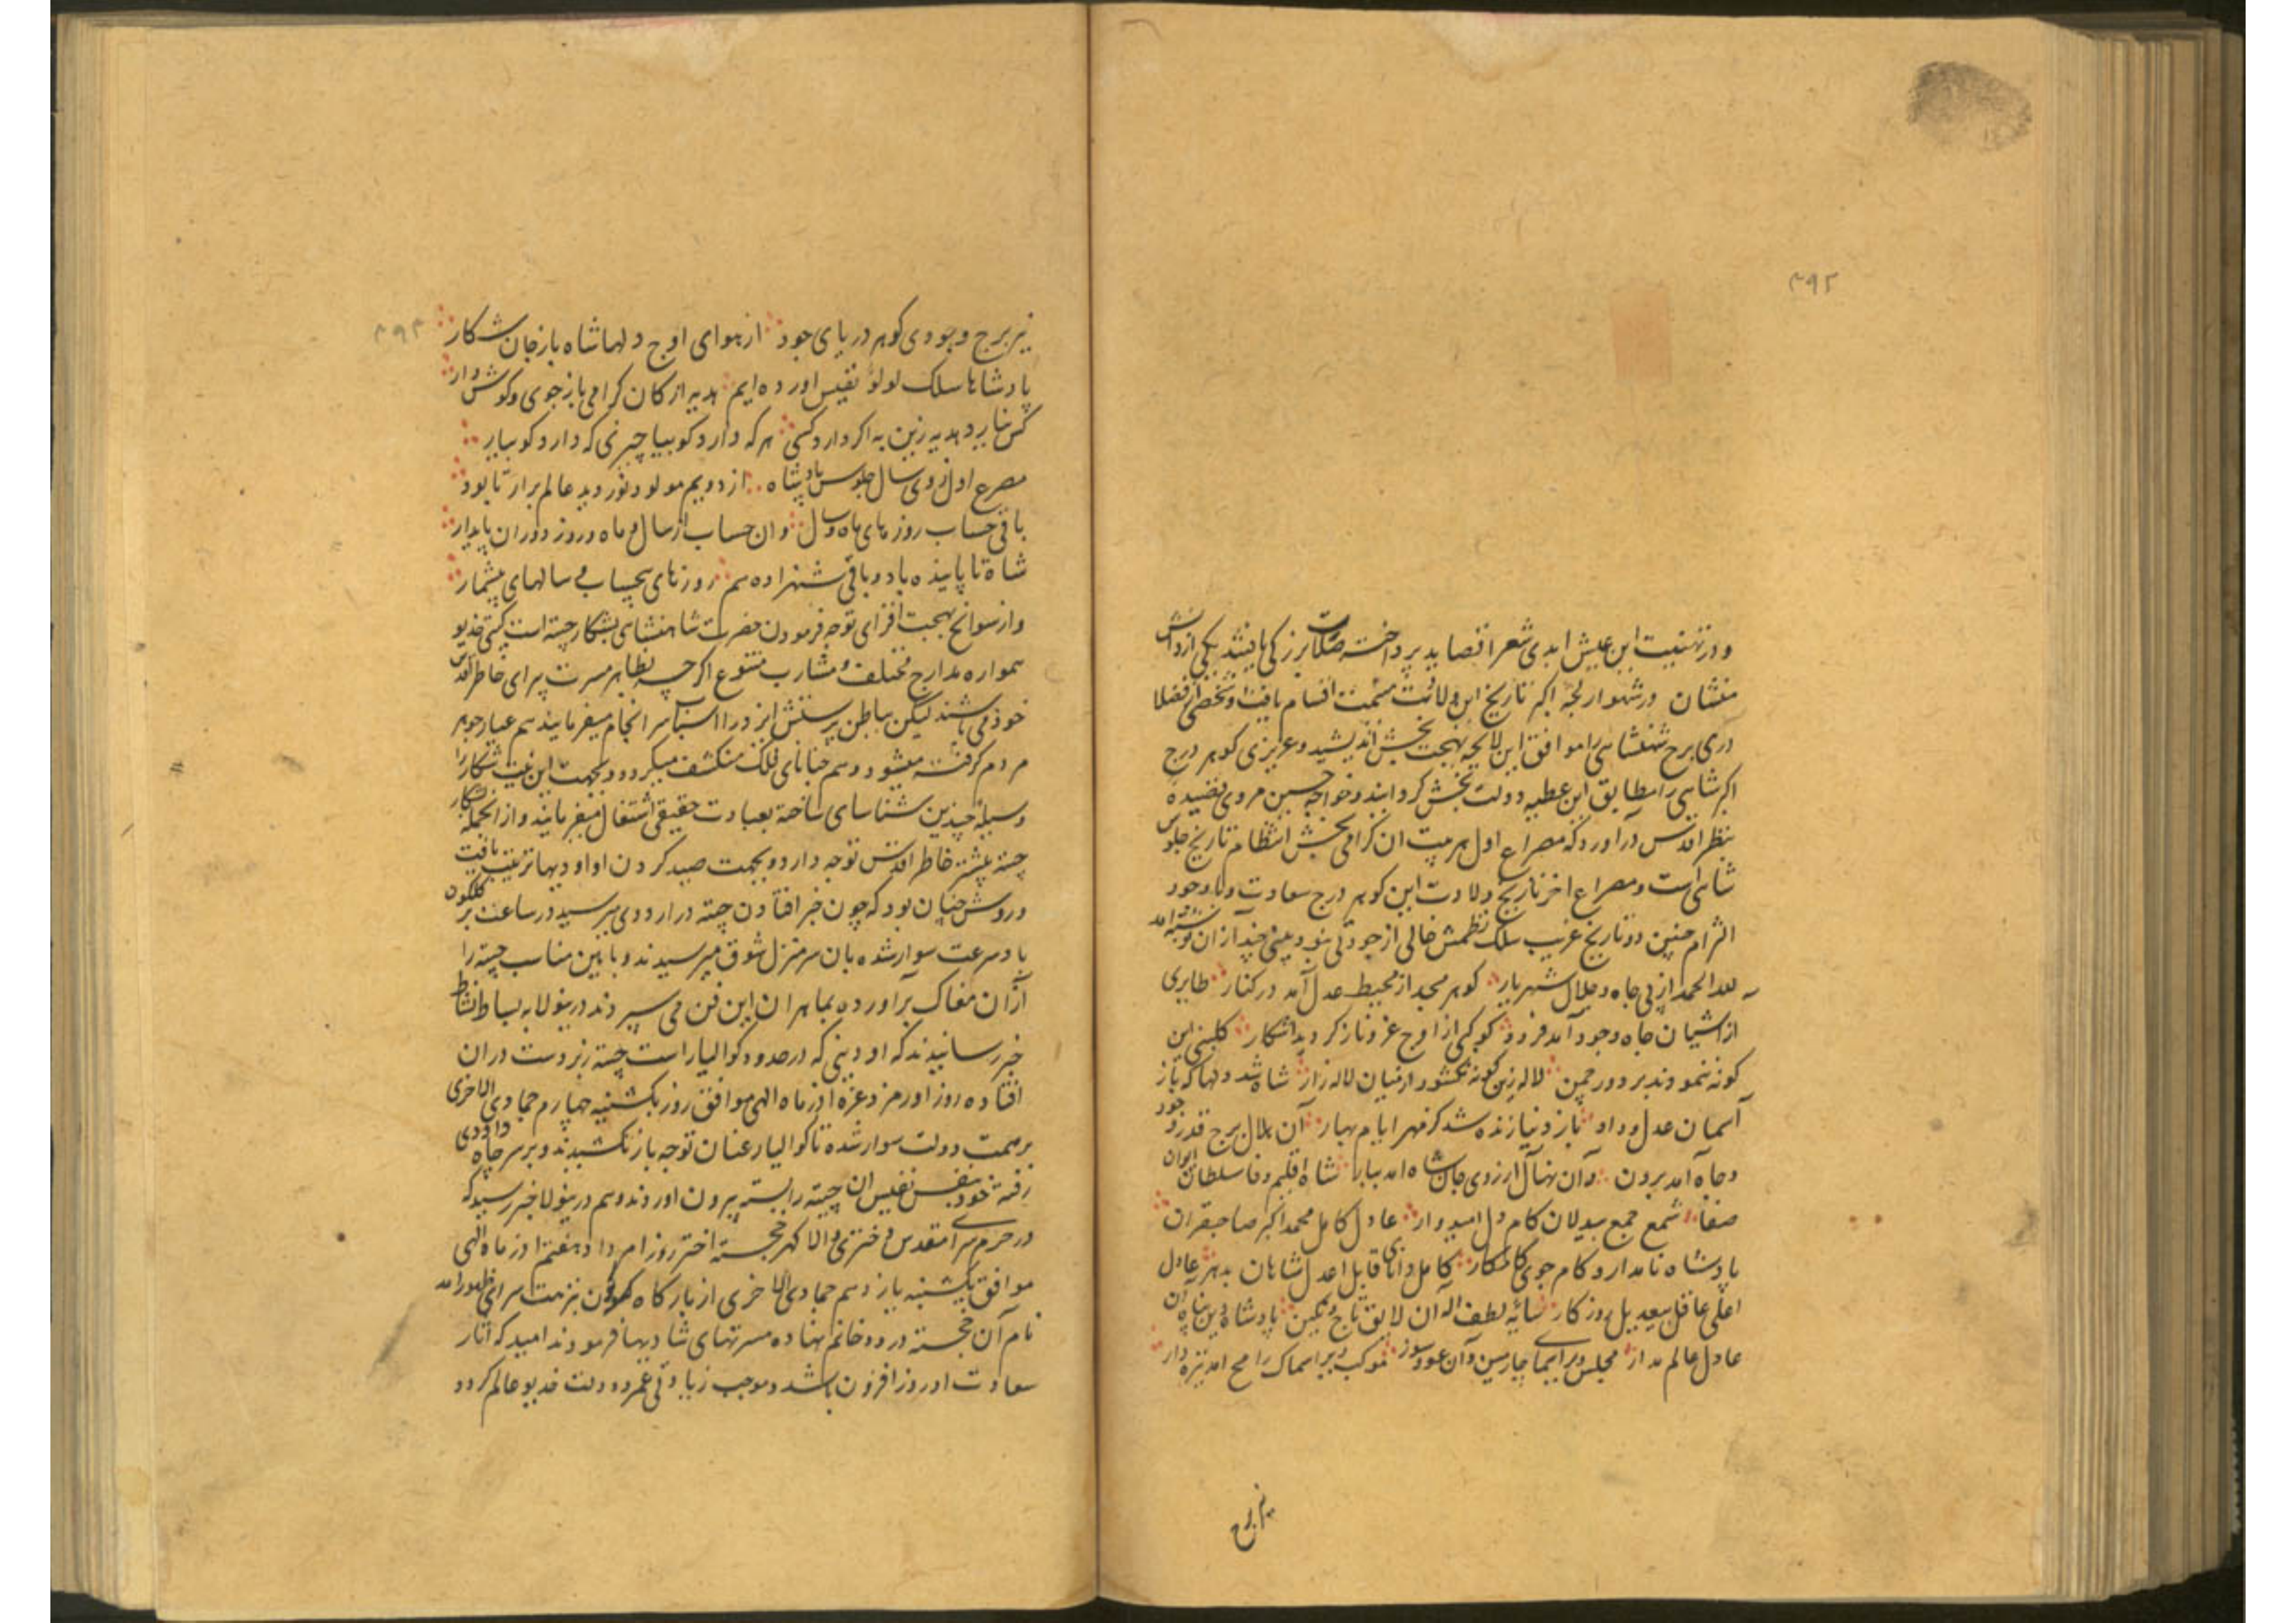 ۴۹۲
و در تهنیت این عیش ابدی شعرا قصاید پرداخته صلات بزرگ یافتند یکی از دانش
منشان در شهوار لجه اکبر تاریخ این ولادت میمنت اقسام یافت و شخصی از فضلا
دری برج شهنشاهی را موافق این لایحه بهجت بخش اندیشید و عزیزی گوهر درج
اکبر شاهی را مطابق این عطیه دولت بخش گردانید و خواجه حسین مروی قصیده
بنظر اقدس در آورد که مصراع اول هر بیت ان گرامی بخش انتظام تاریخ جلوس
شاهی است و مصراع اخر تاریخ ولادت این گوهر درج سعادت و با وجود
التزام چنین دو تاریخ غریب سلک نظمش خالی از جودتی نبود بیتی چند از ان نوشته امد
لله الحمد از پی جاه و جلال شهریار گوهر مجد از محیط عدل آمد در کنار طایری
از اشیان جاه وجود آمد فرود کوکبی از اوج عز و ناز گردید اشکار گلبنی این
گونه ننمودند بر دور چمن لاله زین گونه نگشود از میان لاله زار شاد شد دلها که باز
آسمان عدل و داد باز دنیا زنده شد کز مهر ایام بهار آن هلال برج قدر و جود
و جاه آمد برون وآن نهال آرزوی جان شاه امد ببار شاه اقلیم وفا سلطان ایوان
صفا شمع جمع بیدلان کام دل امیدوار عادل کامل محمد اکبر صاحبقران
پادشاه نامدار و کام جوی کامکار کامل دانای قابل اعدل شاهان بدهر عادل
اعلی عاقل بیعدیل روزگار سایه لطف اله آن لایق تاج و نگین پادشاه دین پناه آن
عادل عالم مدار مجلس ویرا سما چارمین دان عود سوز موکب ویرا سماک رامح امد نیزه دار
نیر برج
۴۹۳
نیر برج وجودی گوهر دریای جود از هوای اوج دلها شاه باز جان شکار
پادشاها سلک لولو نفیس اورده ایم هدیه از کان گرامی باز جوی و گوش دار
کس نیارد هدیه زین به اگر دارد کسی هر که دارد گو بیا چیزی که دارد گو بیار
مصرع اول ز وی سال جلوس پادشاه از دویم مولود نور دیده عالم برار تا بود
باقی حساب روز های ماه و سال وان حساب از سال و ماه و روز دوران پایدار
شاه تا پاینده باد و باقی شهزاده هم روزهای بیحساب و سالهای بیشمار
و از سوانح بهجت افزای توجه فرمودن حضرت شاهنشاهی بشکار چیته است گیتی خدیو
همواره مدارج مختلف و مشارب متنوع اگر چه بظاهر مسرت پیرای خاطر اقدس
خود می باشند لیکن بباطن پرستش ایزد را اسباب سرانجام میفرمایند هم عیار جوهر
مردم گرفته میشود و هم خبایای ملک منکشف میگردد و بجهت این نیت شکار را
وسیله چندین شناسای ساخته بعبادت حقیقی اشتغال میفرمایند و از انجمله بشکار
چیته بیشتر خاطر اقدس توجه دارد و بجهت صید کردن او اودیها ترتیب یافت
و روش چنان بود که چون خبر افتادن چیته در اردوی میرسید در ساعت بر گلگون
باد سرعت سوار شده بان سر منزل شوق میرسیدند و بایین مناسب چیته را
ازان مغاک برآورده بماهران این فن می سپردند درینولا به بساط نشاط
خبر رسانیدند که اودیی که در حدود گوالیار است چیته زبردست دران
افتاده روز اورمزد غره آذر ماه الهی موافق روز یکشنبه چهارم جمادی الاخری
برسمت دولت سوار شده تا گوالیار عنان توجه باز نکشیدند و بر سر چاه داودی
رفته خود بنفس نفیس ان چیته را بسته بیرون اوردند و هم درینولا خبر رسید که
در حرم سرای مقدس دختری والا گهر خجسته اختر روز امرداد هفتم اذر ماه الهی
موافق یکشنبه یازدهم جمادی الاخری از بارگاه کمون بنزهت سرای ظهور امد
نام آن خجسته در دو خانم نهاده مسرتهای شادیها فرمودند امید که اثار
سعادت او روز افزون باشد و موجب زیادتی عمر و دولت خدیو عالم گردد